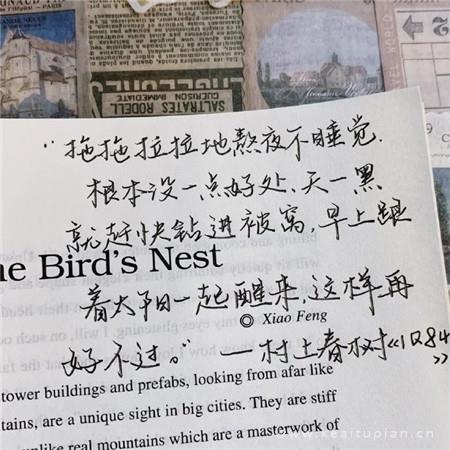 SALTRATES RODELL
GUERISON IMMEDIATE
"拖拖拉拉地熬夜不睡觉.
根本没一点好处、天一黑
就赶快钻进被窝,早上跟
he Bird's Nest
着太阳一起醒来,这样再
◎ Xiao Feng
好不过。" —村上春树《1Q84
》
tower buildings and prefabs, looking from afar like
tains, are a unique sight in big cities. They are stiff
unlike real mountains which are a masterwork of
www.keaitupian.cn